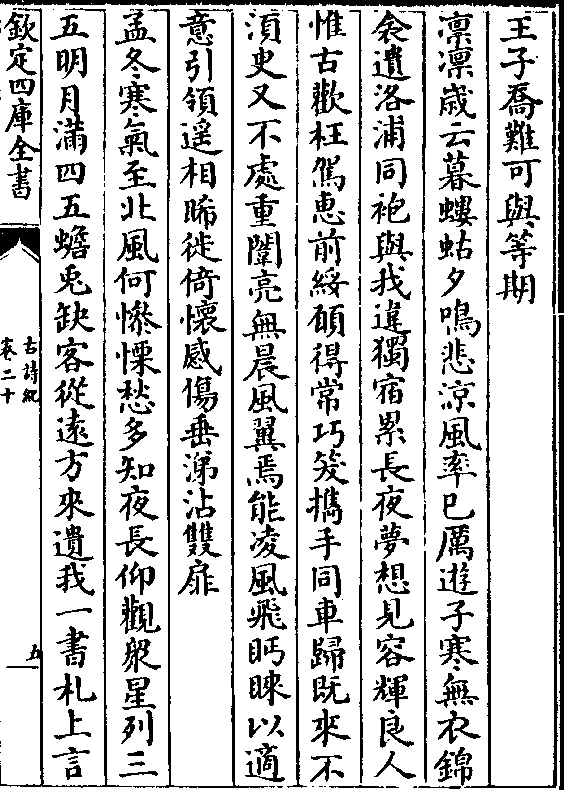 王子喬難可與等期
凛凛歳云暮螻蛄夕鳴悲涼風率已厲遊子寒無衣錦
衾遺洛浦同袍與我違獨宿累長夜夢想見容輝良人
惟古歡枉駕惠前綏願得常巧笑攜手同車歸既來不
湏㬰又不處重闈亮無晨風翼焉能凌風飛眄睞以適
意引領遥相睎徙倚懷感傷垂涕沾雙扉
孟冬寒氣至北風何惨慄愁多知夜長仰觀衆星列三
五明月滿四五蟾兎缺客從遠方來遺我一書札上言
欽定四庫全書
古詩紀
卷二十
五